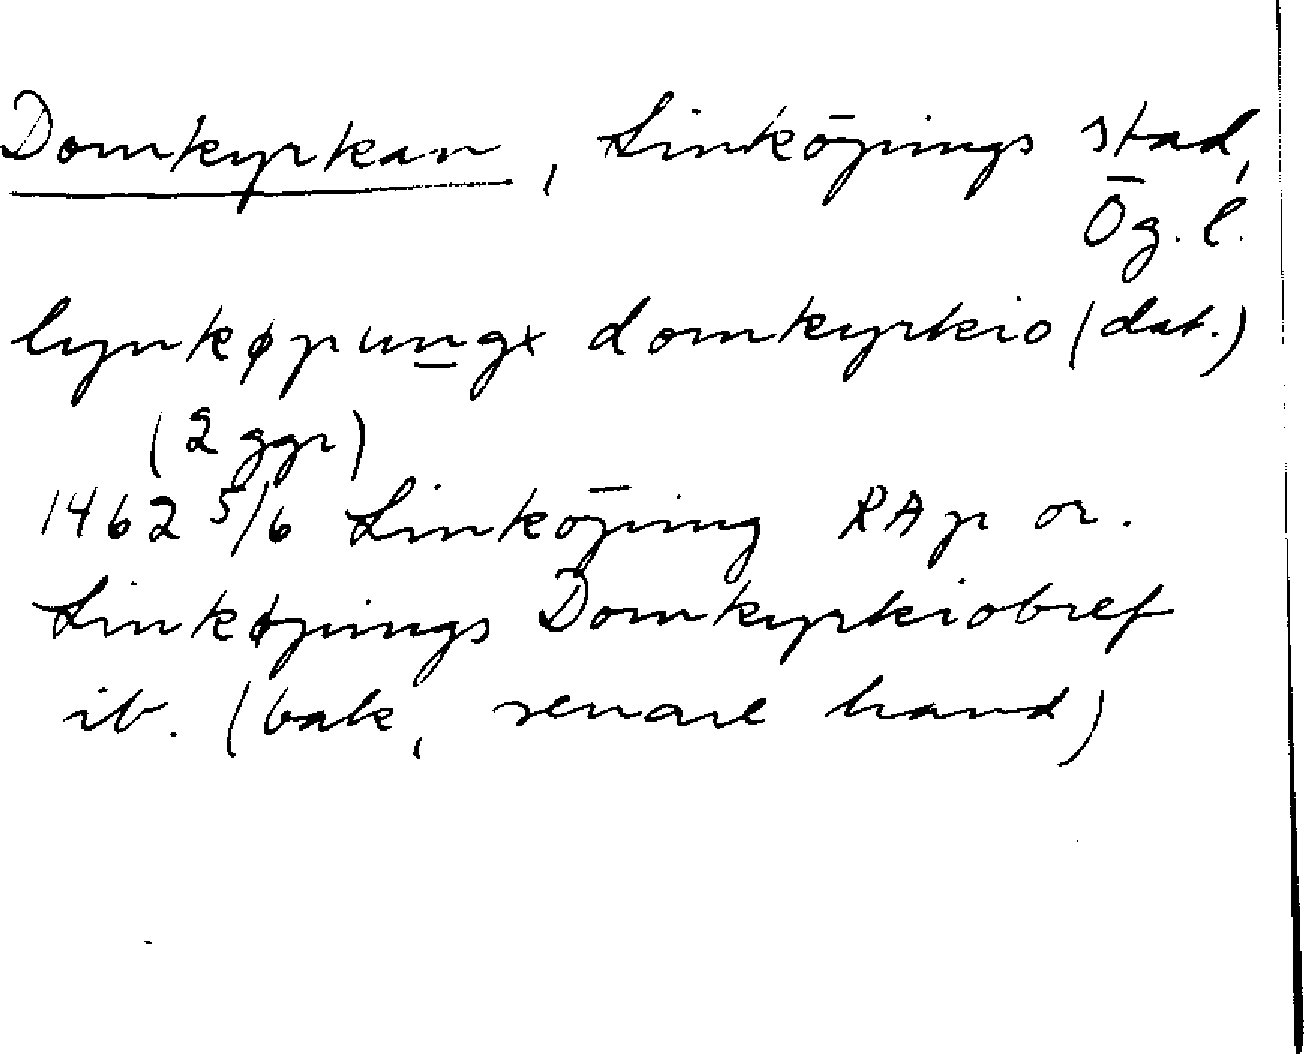 Domkyrkan, Linköpings stad,
Ög. l.
lynkøpungx domkyrkio (dat.)
(2 ggr)
1462 5/6 Linköping RAp or.
Linkøpings Domkyrkiobref
ib. (bak, senare hand)